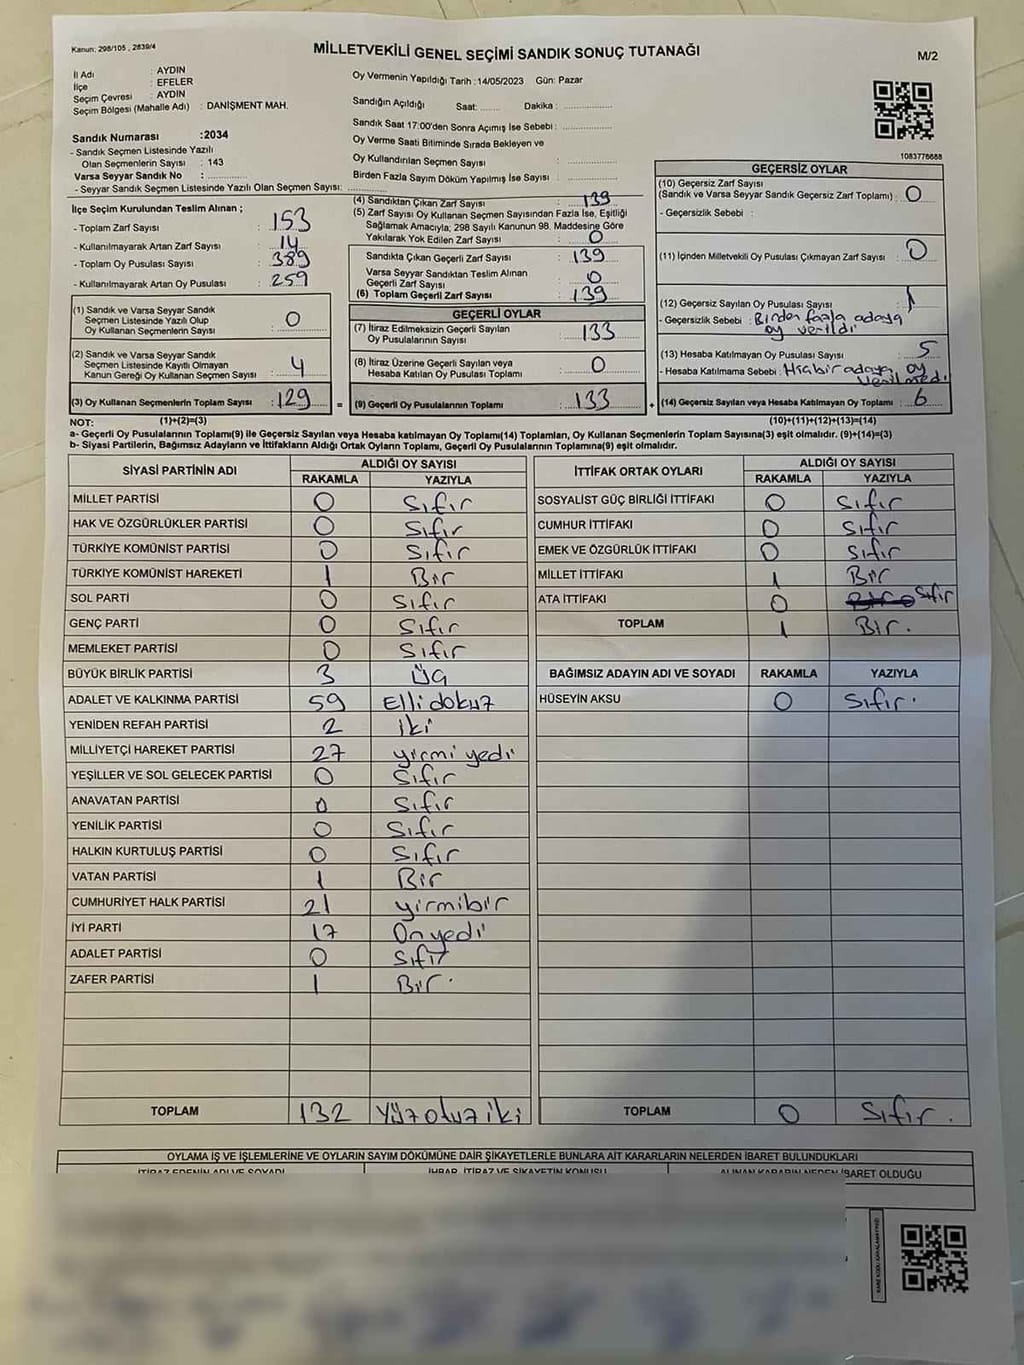 Kanun: 298/105 , 2839/4
MİLLETVEKİLİ GENEL SEÇİMİ SANDIK SONUÇ TUTANAĞI
M/2
İl Adı : AYDIN
İlçe : EFELER
Seçim Çevresi : AYDIN
Seçim Bölgesi (Mahalle Adı) : DANİŞMENT MAH.
Sandık Numarası :2034
- Sandık Seçmen Listesinde Yazılı
Olan Seçmenlerin Sayısı : 143
Varsa Seyyar Sandık No :
- Seyyar Sandık Seçmen Listesinde Yazılı Olan Seçmen Sayısı:
Oy Vermenin Yapıldığı Tarih :14/05/2023 Gün: Pazar
Sandığın Açıldığı Saat: Dakika :
Sandık Saat 17:00'den Sonra Açımış İse Sebebi :
Oy Verme Saati Bitiminde Sırada Bekleyen ve
Oy Kullandırılan Seçmen Sayısı :
Birden Fazla Sayım Döküm Yapılmış İse Sayısı :
1083778688
İlçe Seçim Kurulundan Teslim Alınan ;
- Toplam Zarf Sayısı : 153
- Kullanılmayarak Artan Zarf Sayısı : 14
- Toplam Oy Pusulası Sayısı : 389
- Kullanılmayarak Artan Oy Pusulası : 259
(1) Sandık ve Varsa Seyyar Sandık
Seçmen Listesinde Yazılı Olup
Oy Kullanan Seçmenlerin Sayısı : 0
(2) Sandık ve Varsa Seyyar Sandık
Seçmen Listesinde Kayıtlı Olmayan
Kanun Gereği Oy Kullanan Seçmen Sayısı : 4
(3) Oy Kullanan Seçmenlerin Toplam Sayısı : 129 =
(4) Sandıktan Çıkan Zarf Sayısı : 139
(5) Zarf Sayısı Oy Kullanan Seçmen Sayısından Fazla İse, Eşitliği
Sağlamak Amacıyla; 298 Sayılı Kanunun 98. Maddesine Göre
Yakılarak Yok Edilen Zarf Sayısı : 0
Sandıkta Çıkan Geçerli Zarf Sayısı : 139
Varsa Seyyar Sandıktan Teslim Alınan
Geçerli Zarf Sayısı : 0
(6) Toplam Geçerli Zarf Sayısı : 139
GEÇERLİ OYLAR
(7) İtiraz Edilmeksizin Geçerli Sayılan
Oy Pusulalarının Sayısı : 133
(8) İtiraz Üzerine Geçerli Sayılan veya
Hesaba Katılan Oy Pusulası Toplamı : 0
(9) Geçerli Oy Pusulalarının Toplamı : 133 +
GEÇERSİZ OYLAR
(10) Geçersiz Zarf Sayısı
(Sandık ve Varsa Seyyar Sandık Geçersiz Zarf Toplamı) : 0
- Geçersizlik Sebebi :
(11) İçinden Milletvekili Oy Pusulası Çıkmayan Zarf Sayısı : 0
(12) Geçersiz Sayılan Oy Pusulası Sayısı : 1
- Geçersizlik Sebebi : Birden fazla adaya
oy verildi
(13) Hesaba Katılmayan Oy Pusulası Sayısı : 5
- Hesaba Katılmama Sebebi : Hiçbir adaya oy
verilmedi
(14) Geçersiz Sayılan veya Hesaba Katılmayan Oy Toplamı : 6
NOT: (1)+(2)=(3) (10)+(11)+(12)+(13)=(14)
a- Geçerli Oy Pusulalarının Toplamı(9) ile Geçersiz Sayılan veya Hesaba katılmayan Oy Toplamı(14) Toplamları, Oy Kullanan Seçmenlerin Toplam Sayısına(3) eşit olmalıdır. (9)+(14)=(3)
b- Siyasi Partilerin, Bağımsız Adayların ve İttifakların Aldığı Ortak Oyların Toplamı, Geçerli Oy Pusulalarının Toplamına(9) eşit olmalıdır.
SİYASİ PARTİNİN ADI ALDIĞI OY SAYISI
RAKAMLA YAZIYLA
MİLLET PARTİSİ 0 Sıfır
HAK VE ÖZGÜRLÜKLER PARTİSİ 0 Sıfır
TÜRKİYE KOMÜNİST PARTİSİ 0 Sıfır
TÜRKİYE KOMÜNİST HAREKETİ 1 Bir
SOL PARTİ 0 Sıfır
GENÇ PARTİ 0 Sıfır
MEMLEKET PARTİSİ 0 Sıfır
BÜYÜK BİRLİK PARTİSİ 3 Üç
ADALET VE KALKINMA PARTİSİ 59 Ellidokuz
YENİDEN REFAH PARTİSİ 2 iki
MİLLİYETÇİ HAREKET PARTİSİ 27 yirmi yedi
YEŞİLLER VE SOL GELECEK PARTİSİ 0 Sıfır
ANAVATAN PARTİSİ 0 Sıfır
YENİLİK PARTİSİ 0 Sıfır
HALKIN KURTULUŞ PARTİSİ 0 Sıfır
VATAN PARTİSİ 1 Bir
CUMHURİYET HALK PARTİSİ 21 yirmibir
İYİ PARTİ 17 Onyedi
ADALET PARTİSİ 0 Sıfır
ZAFER PARTİSİ 1 Bir.
TOPLAM 132 Yüzotuziki
İTTİFAK ORTAK OYLARI ALDIĞI OY SAYISI
RAKAMLA YAZIYLA
SOSYALİST GÜÇ BİRLİĞİ İTTİFAKI 0 Sıfır
CUMHUR İTTİFAKI 0 Sıfır
EMEK VE ÖZGÜRLÜK İTTİFAKI 0 Sıfır
MİLLET İTTİFAKI 1 Bir
ATA İTTİFAKI 0 Sıfır
TOPLAM 1 Bir.
BAĞIMSIZ ADAYIN ADI VE SOYADI RAKAMLA YAZIYLA
HÜSEYİN AKSU 0 Sıfır.
TOPLAM 0 Sıfır.
OYLAMA İŞ VE İŞLEMLERİNE VE OYLARIN SAYIM DÖKÜMÜNE DAİR ŞİKAYETLERLE BUNLARA AİT KARARLARIN NELERDEN İBARET BULUNDUKLARI
İTİRAZ EDENİN ADI VE SOYADI İHBAR, İTİRAZ VE ŞİKAYETİN KONUSU ALINAN KARARIN NEDEN İBARET OLDUĞU